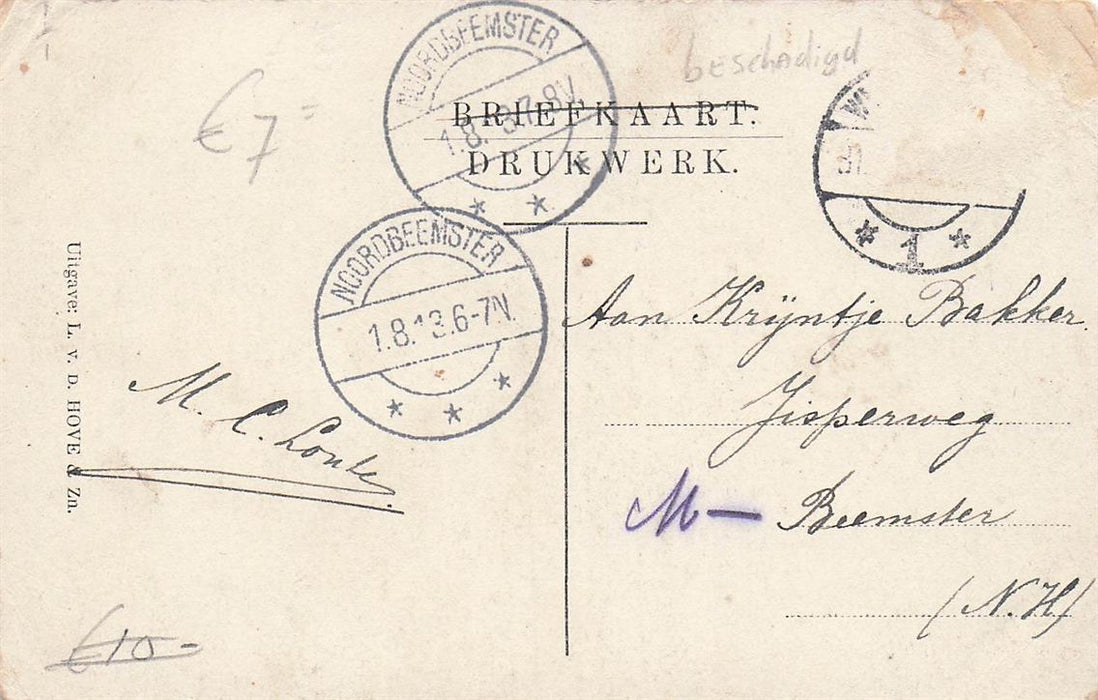 NOORDBEEMSTER
1.8.13.7-8V.
beschadigd
€7=
BRIEFKAART.
DRUKWERK.
NOORDBEEMSTER
1.8.13.6-7N.
1
Uitgave: L. v. D. HOVE & Zn.
M. C.
Aan Krijntje Bakker.
Jisperweg
M— Beemster
(N.H)
€10-